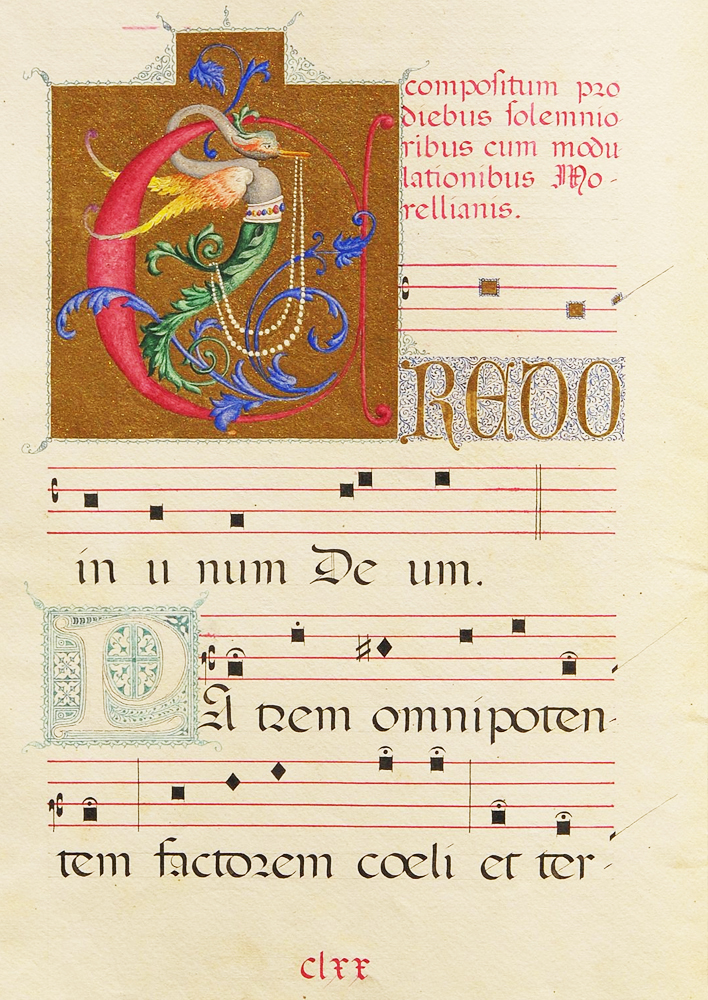 compoſitum pro
diebus ſolemnio
ribus cum modu
lationibus Mo-
rellianis.
CREDO
in u num De um.
PA trem omnipoten-
tem factorem cœli et ter-
clxx